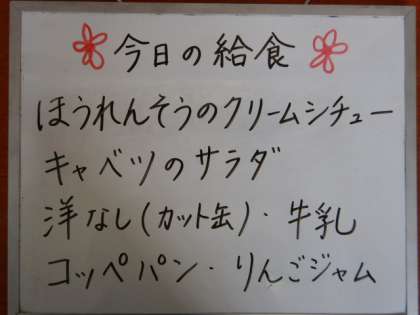 今日の給食
ほうれんそうのクリームシチュー
キャベツのサラダ
洋なし(カット缶)・牛乳
コッペパン・りんごジャム